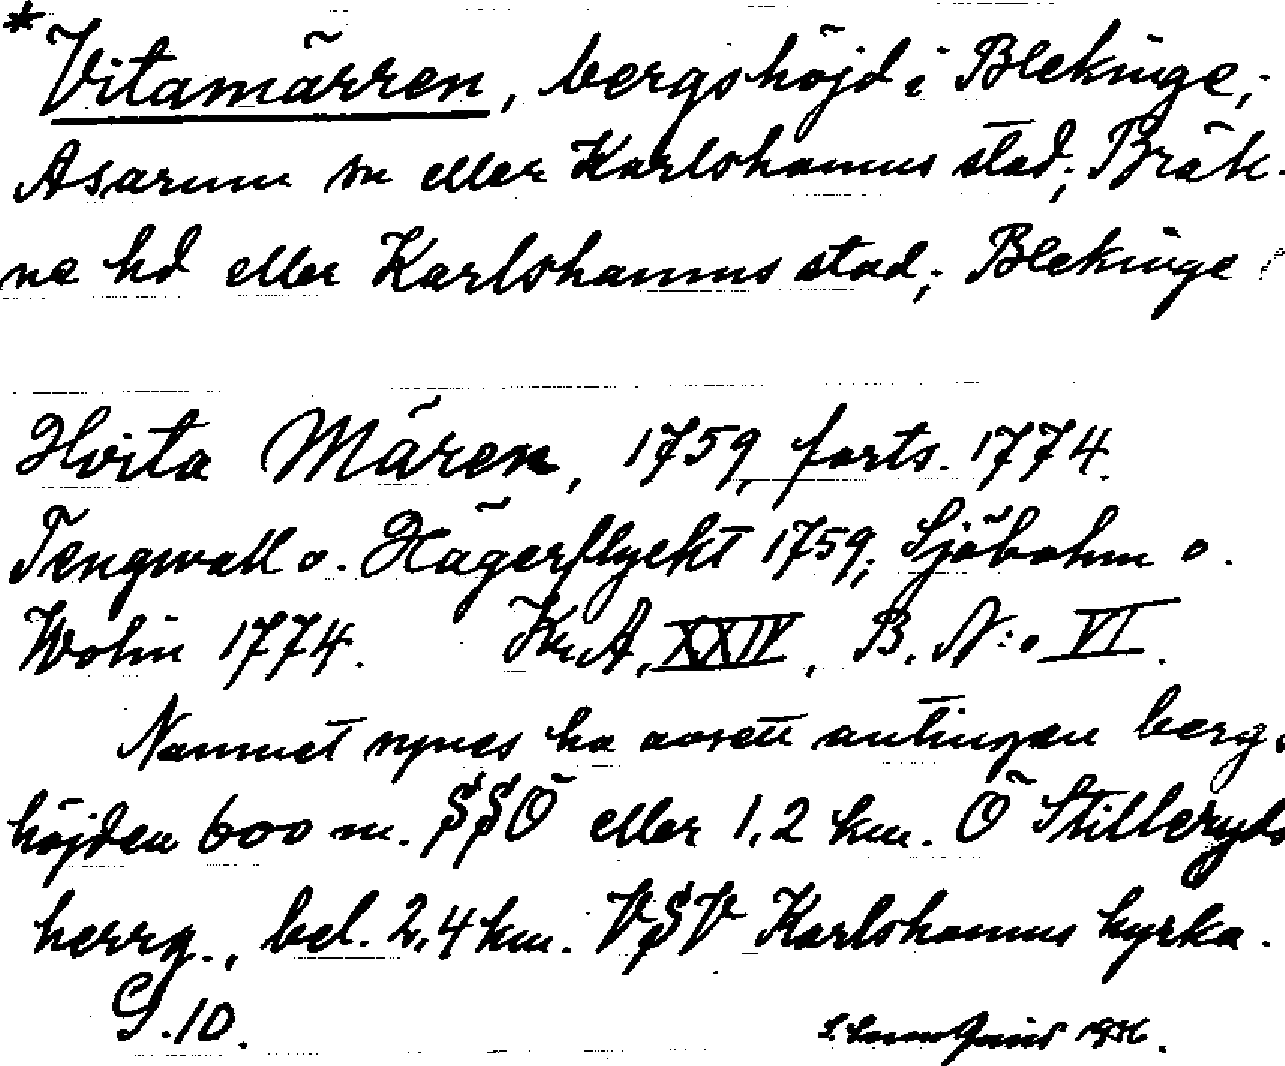 *Vitamärren, bergshöjd i Blekinge;
Asarum sn eller Karlshamns stad; Bräk-
ne hd eller Karlshamns stad; Blekinge
Hvita Mären, 1759, forts. 1774.
Tengwall o. Hägerflyckt 1759; Sjöbohm o.
Wolin 1774. Kn.A, XXIV, B. N:o VI.
Namnet synes ha avsett antingen bergs-
höjden 600 m. SSÖ eller 1,2 km. Ö Stilleryds
herrg., bel. 2,4 km. VSV Karlshamns kyrka.
S.10. 1936.